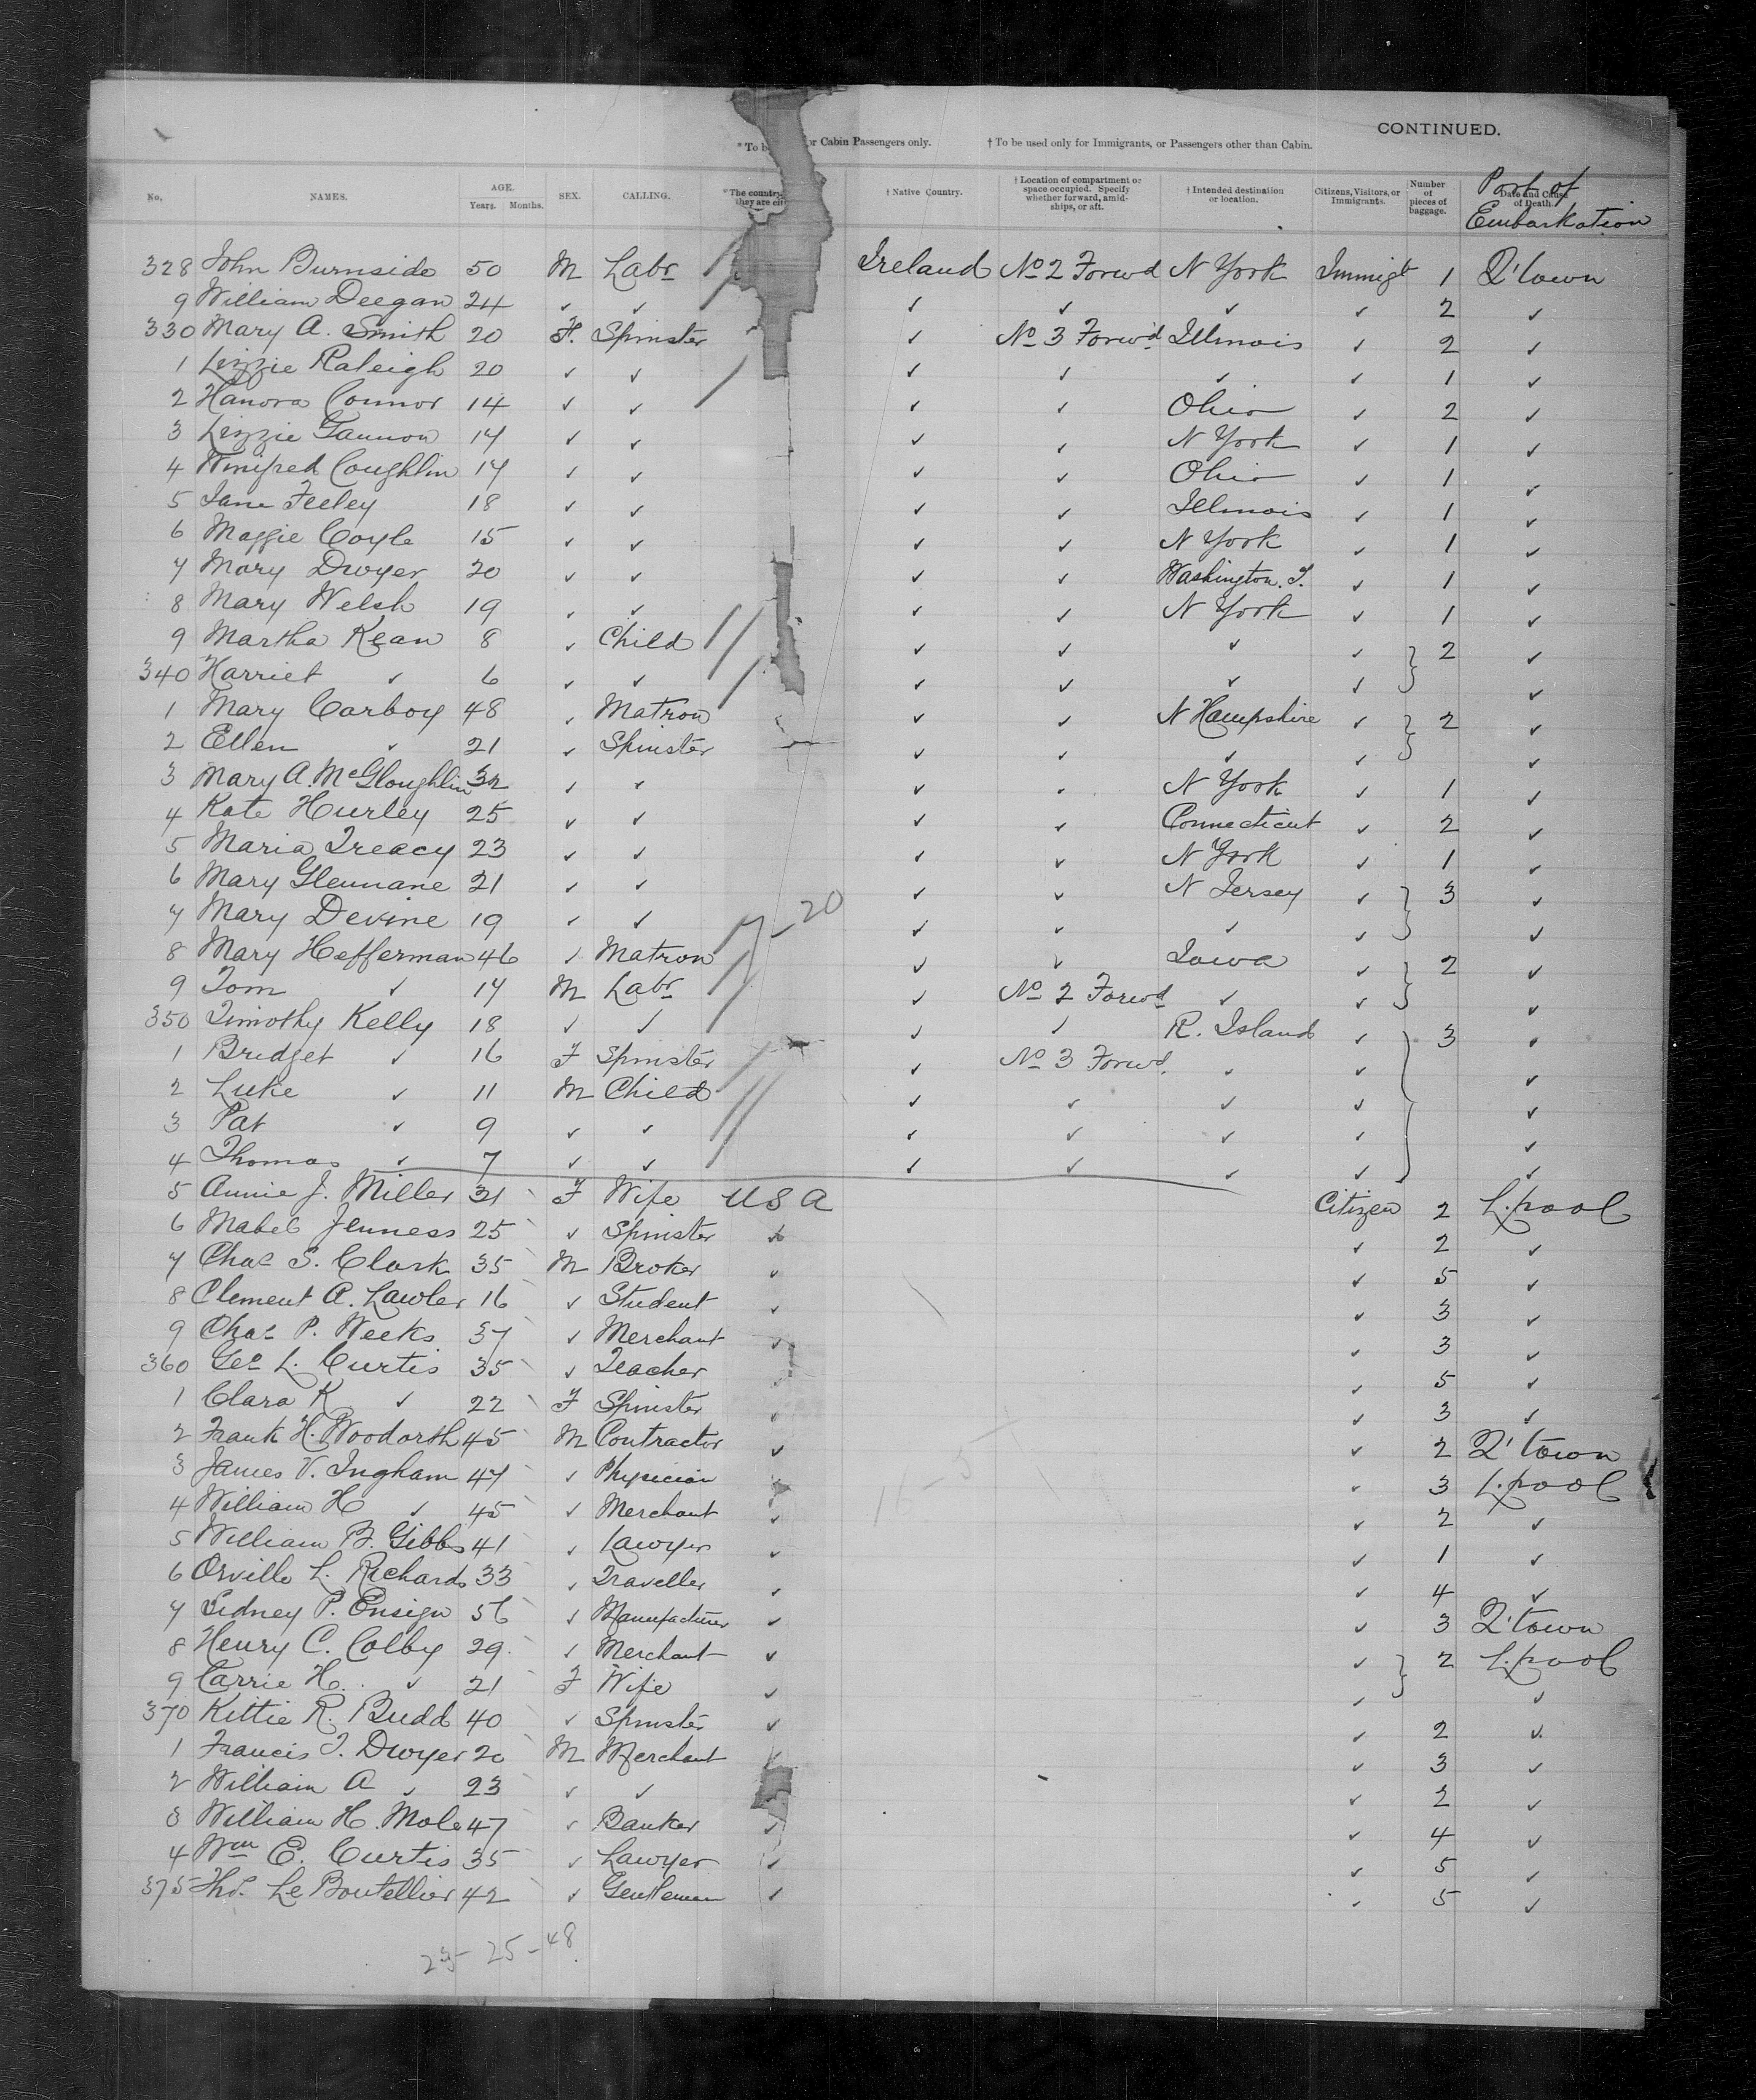 CONTINUED.
*To b or Cabin Passengers only. † To be used only for Immigrants, or Passengers other than Cabin.
No. NAMES. AGE. Years. Months. SEX. CALLING. *The country they are cit † Native Country. † Location of compartment or space occupied. Specify whether forward, amidships, or aft. † Intended destination or location. Citizens, Visitors, or Immigrants. Number of pieces of baggage. Date and Cause of Death. Port of Embarkation
328 John Burnside 50 M Labr Ireland No 2 Forwd N York Immigt 1 Q'town
9 William Deegan 24 ✓ ✓ ✓ ✓ ✓ ✓ 2 ✓
330 Mary A. Smith 20 F. Spinster ✓ No 3 Forwd Illinois ✓ 2 ✓
1 Lizzie Raleigh 20 ✓ ✓ ✓ ✓ ✓ ✓ 1 ✓
2 Hanora Connor 14 ✓ ✓ ✓ ✓ Ohio ✓ 2 ✓
3 Lizzie Gannon 17 ✓ ✓ ✓ ✓ N York ✓ 1 ✓
4 Winifred Coughlin 17 ✓ ✓ ✓ ✓ Ohio ✓ 1 ✓
5 Jane Feeley 18 ✓ ✓ ✓ ✓ Illinois ✓ 1 ✓
6 Maggie Coyle 15 ✓ ✓ ✓ ✓ N York ✓ 1 ✓
7 Mary Dwyer 20 ✓ ✓ ✓ ✓ Washington. T. ✓ 1 ✓
8 Mary Welsh 19 ✓ ✓ ✓ ✓ N York ✓ 1 ✓
9 Martha Kean 8 ✓ Child ✓ ✓ ✓ ✓ 2 ✓
340 Harriet ✓ 6 ✓ ✓ ✓ ✓ ✓ ✓ ✓
1 Mary Carboy 48 ✓ Matron ✓ ✓ N Hampshire ✓ 2 ✓
2 Ellen ✓ 21 ✓ Spinster ✓ ✓ ✓ ✓ ✓
3 Mary A. McGloughlin 32 ✓ ✓ ✓ ✓ N York ✓ 1 ✓
4 Kate Hurley 25 ✓ ✓ ✓ ✓ Connecticut ✓ 2 ✓
5 Maria Treacy 23 ✓ ✓ ✓ ✓ N York ✓ 1 ✓
6 Mary Glennane 21 ✓ ✓ ✓ ✓ N Jersey ✓ 3 ✓
7 Mary Devine 19 ✓ ✓ 20 ✓ ✓ ✓ ✓ ✓
8 Mary Hefferman 46 ✓ Matron ✓ ✓ Iowa ✓ 2 ✓
9 Tom ✓ 17 M Labr ✓ No 2 Forwd ✓ ✓ ✓
350 Timothy Kelly 18 ✓ ✓ ✓ ✓ R. Island ✓ 3 ✓
1 Bridget ✓ 16 F Spinster ✓ No 3 Forwd. ✓ ✓ ✓
2 Luke ✓ 11 M Child ✓ ✓ ✓ ✓ ✓
3 Pat ✓ 9 ✓ ✓ ✓ ✓ ✓ ✓ ✓
4 Thomas ✓ 7 ✓ ✓ ✓ ✓ ✓ ✓ ✓
5 Annie J. Miller 31 F Wife USA Citizen 2 L.pool
6 Mabel Jenness 25 ✓ Spinster ✓ ✓ 2 ✓
7 Chas S. Clark 35 M Broker ✓ ✓ 5 ✓
8 Clement A. Lawler 16 ✓ Student ✓ ✓ 3 ✓
9 Chas P. Weeks 37 ✓ Merchant ✓ ✓ 3 ✓
360 Geo L. Curtis 35 ✓ Teacher ✓ ✓ 5 ✓
1 Clara K ✓ 22 F Spinster ✓ ✓ 3 ✓
2 Frank H. Woodorth 45 M Contractor ✓ ✓ 2 Q'town
3 James V. Ingham 47 ✓ Physician ✓ ✓ 3 L.pool
4 William H ✓ 45 ✓ Merchant ✓ ✓ 2 ✓
5 William B. Gibbs 41 ✓ Lawyer ✓ ✓ 1 ✓
6 Orville L. Richards 33 ✓ Traveller ✓ ✓ 4 ✓
7 Sidney P. Ensign 56 ✓ Manufacturer ✓ ✓ 3 Q'town
8 Henry C. Colby 29. ✓ Merchant ✓ ✓ 2 L.pool
9 Carrie H. ✓ 21 F Wife ✓ ✓ ✓
370 Kittie R. Budd 40 ✓ Spinster ✓ ✓ 2 ✓
1 Francis T. Dwyer 20 M Merchant ✓ ✓ 3 ✓
2 William A ✓ 23 ✓ ✓ ✓ 2 ✓
3 William H. Mole 47 ✓ Banker ✓ ✓ 4 ✓
4 Wm E. Curtis 35 ✓ Lawyer ✓ ✓ 5 ✓
375 Le Boutellier 42 ✓ Gentleman ✓ ✓ 5 ✓
25 - 48